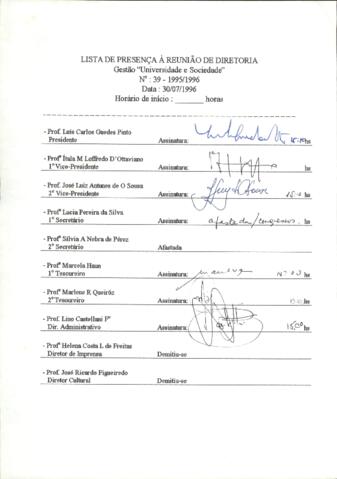 LISTA DE PRESENÇA À REUNIÃO DE DIRETORIA
Gestão "Universidade e Sociedade"
Nº : 39 - 1995/1996
Data : 30/07/1996
Horário de início : ______ horas
- Prof. Luis Carlos Guedes Pinto
Presidente Assinatura: hs
- Profª Ítala M Loffredo D'Ottaviano
1º Vice-Presidente Assinatura: hs
- Prof. José Luiz Antunes de O Sousa
2º Vice-Presidente Assinatura: hs
- Profª Lucia Pereira da Silva
1º Secretário Assinatura: afastada/congresso hs
- Profª Silvia A Nebra de Pérez
2º Secretário Afastada
- Profª Marcela Haun
1º Tesoureiro Assinatura: hs
- Profª Marlene R Queiróz
2º Tesoureiro Assinatura: hs
- Prof. Lino Castellani Fº
Dir. Administrativo Assinatura: 15:00 hs
- Profª Helena Costa L de Freitas
Diretor de Imprensa Demitiu-se
- Prof. José Ricardo Figueiredo
Diretor Cultural Demitiu-se